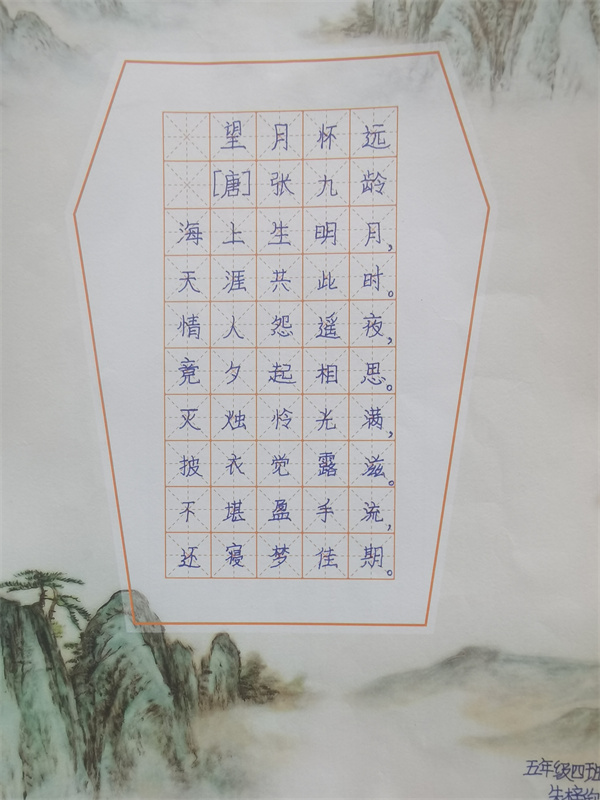 望月怀远
[唐]张九龄
海上生明月，
天涯共此时。
情人怨遥夜，
竟夕起相思。
灭烛怜光满，
披衣觉露滋。
不堪盈手流，
还寝梦佳期。
五年级四班
朱梓